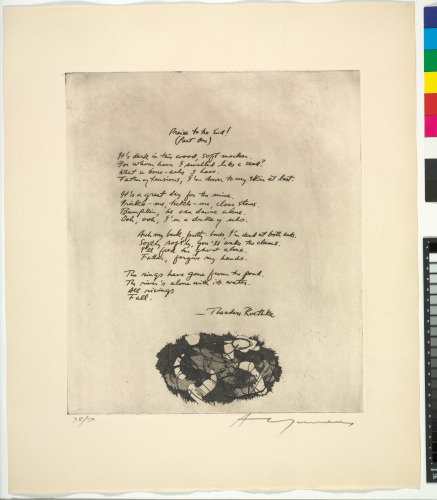 Praise to the End!
(Part One)
It's dark in this wood, soft mocker.
For whom have I swelled like a seed?
What a bone-ache I have.
Father of tensions, I'm down to my skin at last.
It's a great day for the mice.
Prickle-me, tickle-me, close stems.
Bumpkin, he can dance alone.
Ooh, ooh, I'm a duke of eels.
Arch my back, pretty-bones, I'm dead at both ends.
Softly softly, you'll wake the clams.
I'll feed the ghost alone.
Father, forgive my hands.
The rings have gone from the pond.
The river's alone with its water.
All risings
Fall.
—Theodore Roethke
38/50